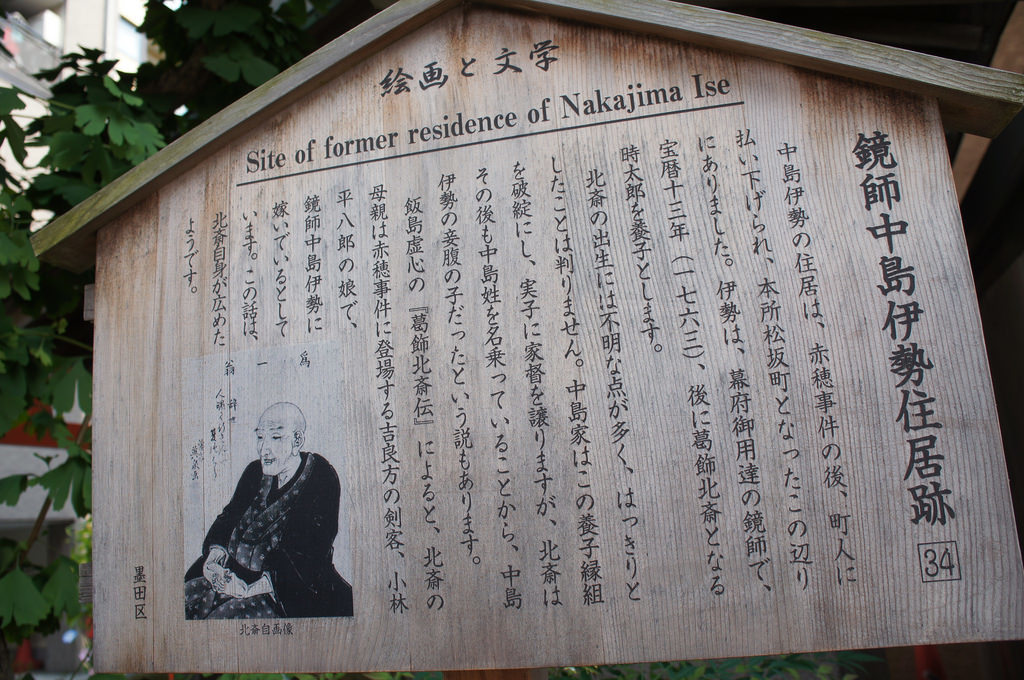 絵画と文学
Site of former residence of Nakajima Ise
鏡師中島伊勢住居跡
34
中島伊勢の住居は、赤穂事件の後、町人に
払い下げられ、本所松坂町となったこの辺り
にありました。伊勢は、幕府御用達の鏡師で、
宝暦十三年（一七六三）、後に葛飾北斎となる
時太郎を養子とします。
北斎の出生には不明な点が多く、はっきりと
したことは判りません。中島家はこの養子縁組
を破綻にし、実子に家督を譲りますが、北斎は
その後も中島姓を名乗っていることから、中島
伊勢の妾腹の子だったという説もあります。
飯島虚心の『葛飾北斎伝』によると、北斎の
母親は赤穂事件に登場する吉良方の剣客、小林
平八郎の娘で、
鏡師中島伊勢に
嫁いでいるとして
います。この話は、
北斎自身が広めた
ようです。
為
一
翁
北斎自画像
墨田区